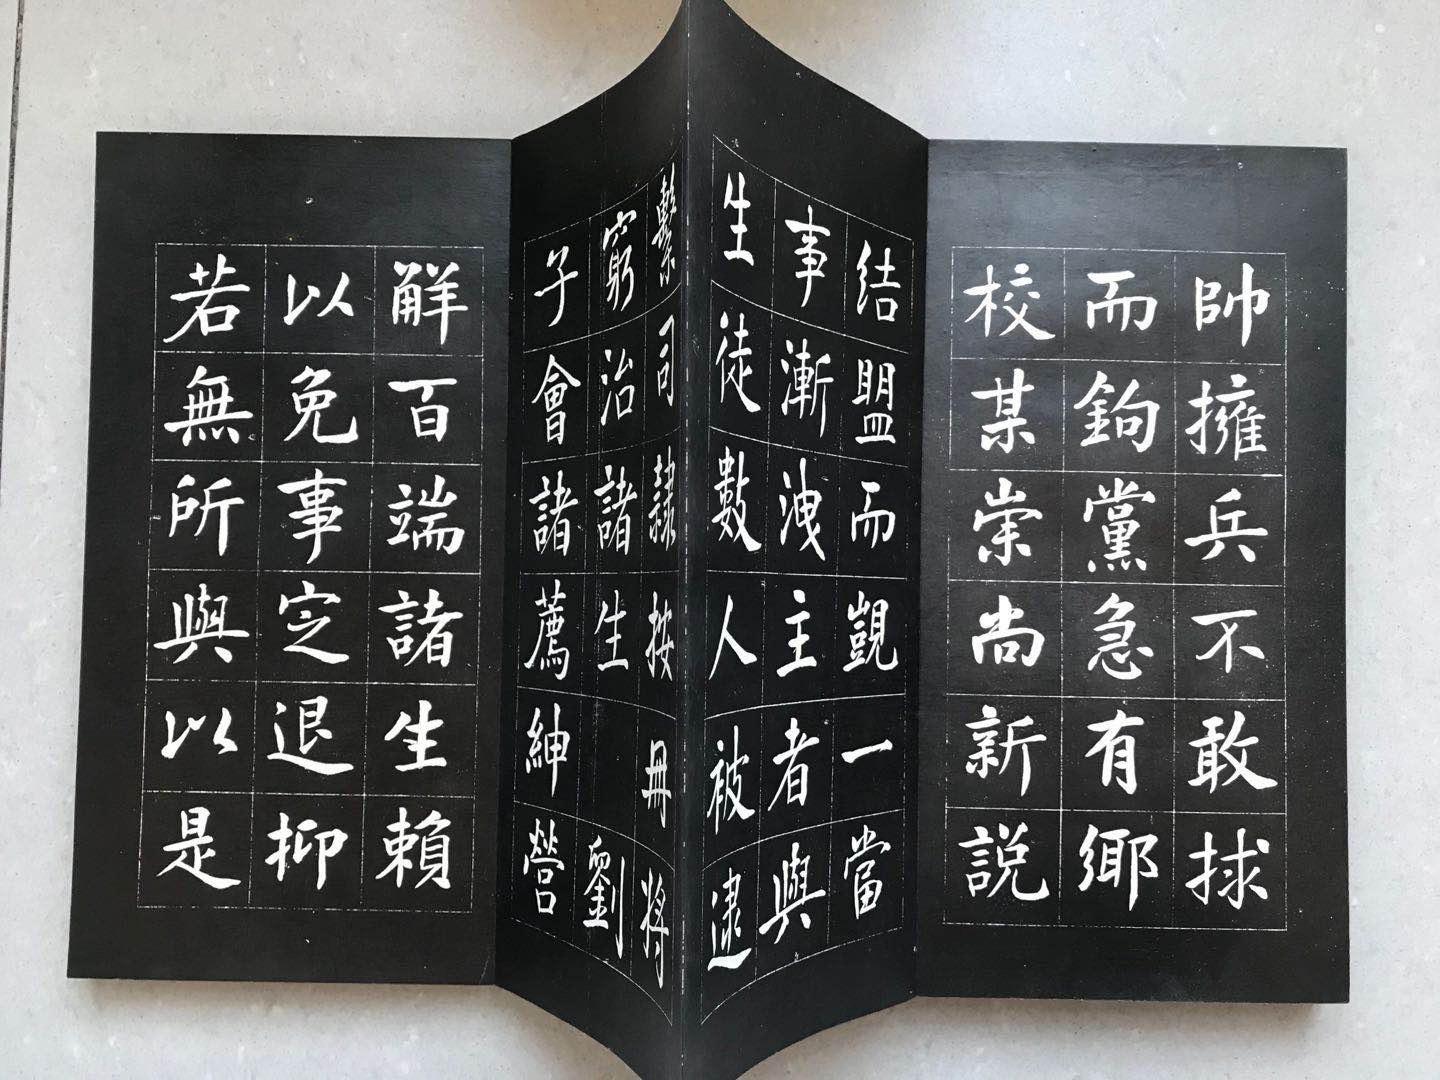 帥擁兵不敢捄
而鉤黨急有鄉
校某崇尚新説
結盟而觊一當
事漸洩主者與
生徒數人被逮
繫司隷按冊將
窮治諸生 劉
子會諸薦紳營
解百端諸生賴
以免事定退抑
若無所與以是